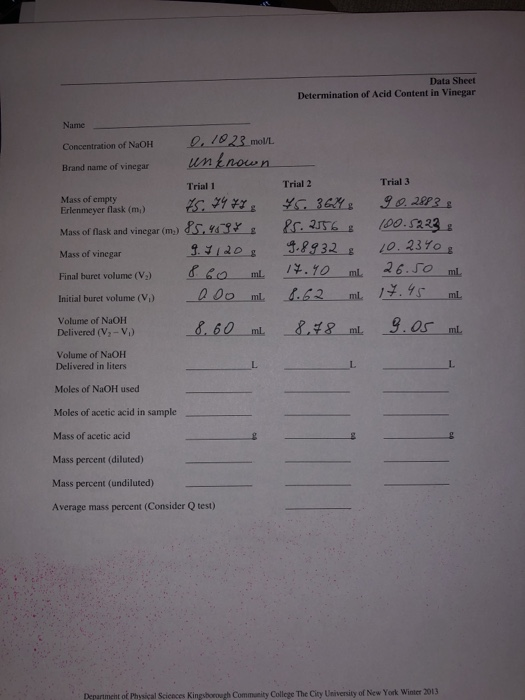 Data Sheet
Determination of Acid Content in Vinegar
Name
Concentration of NaOH 0.1023 mol/L
Brand name of vinegar unknown
Trial 1 Trial 2 Trial 3
Mass of empty
Erlenmeyer flask (m₁) g g 90.2883 g
Mass of flask and vinegar (m₂) g 85.2556 g 100.5223 g
Mass of vinegar 9.7120 g 9.8932 g 10.2340 g
Final buret volume (V₂) 8.60 mL 17.40 mL 26.50 mL
Initial buret volume (V₁) 0.00 mL 8.62 mL 17.45 mL
Volume of NaOH
Delivered (V₂ – V₁) 8.60 mL 8.78 mL 9.05 mL
Volume of NaOH
Delivered in liters L L L
Moles of NaOH used
Moles of acetic acid in sample
Mass of acetic acid g g g
Mass percent (diluted)
Mass percent (undiluted)
Average mass percent (Consider Q test)
Department of Physical Sciences Kingsborough Community College The City University of New York Winter 2013